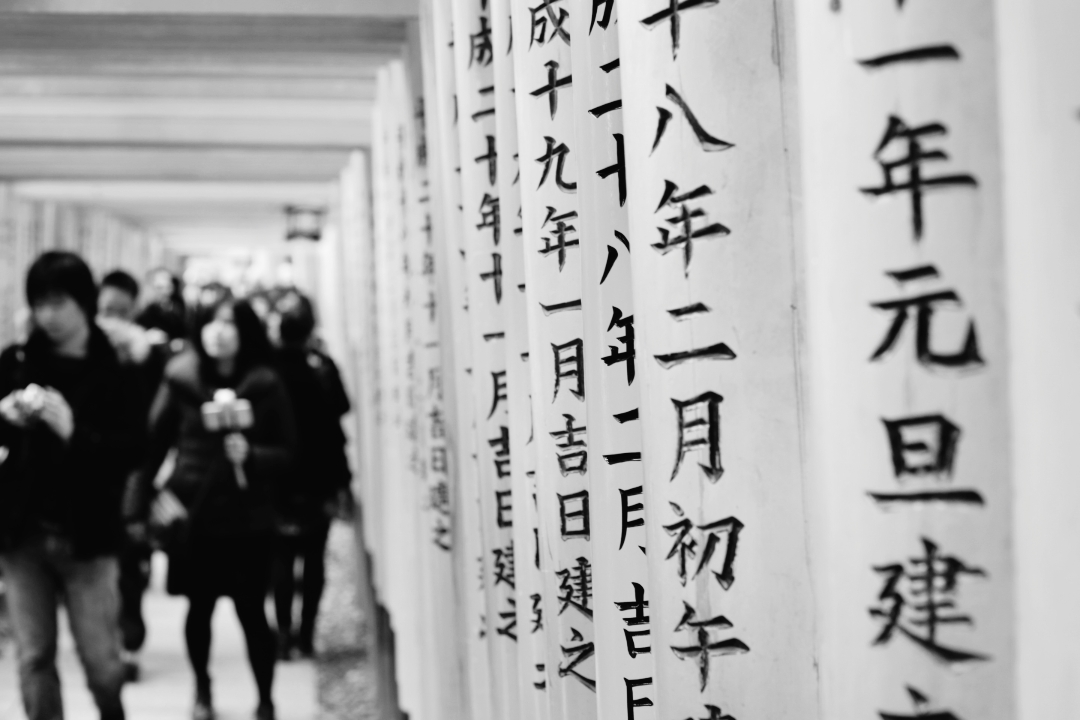 一年元旦建
十八年二月初午
二十八年二月吉日
成十九年一月吉日建之
成二十年十一月吉日建之
一月吉日建之